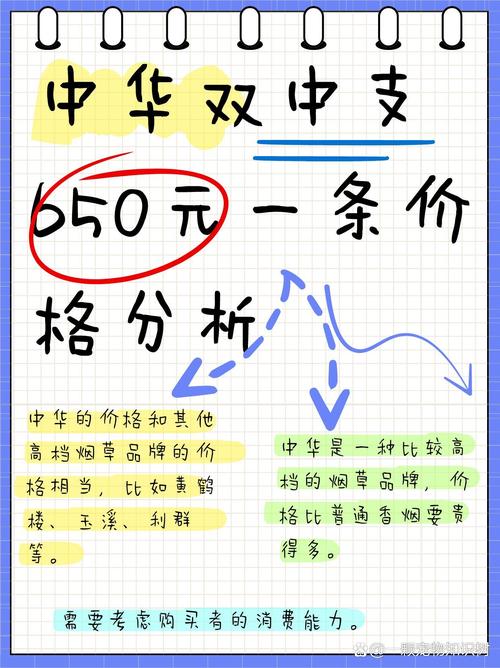 中华双中支
650元一条价
格分析
中华的价格和其他
高档烟草品牌的价
格相当，比如黄鹤
楼、玉溪、利群
等。
中华是一种比较高
档的烟草品牌，价
格比普通香烟要贵
得多。
需要考虑购买者的消费能力。
一颗宠物知识树